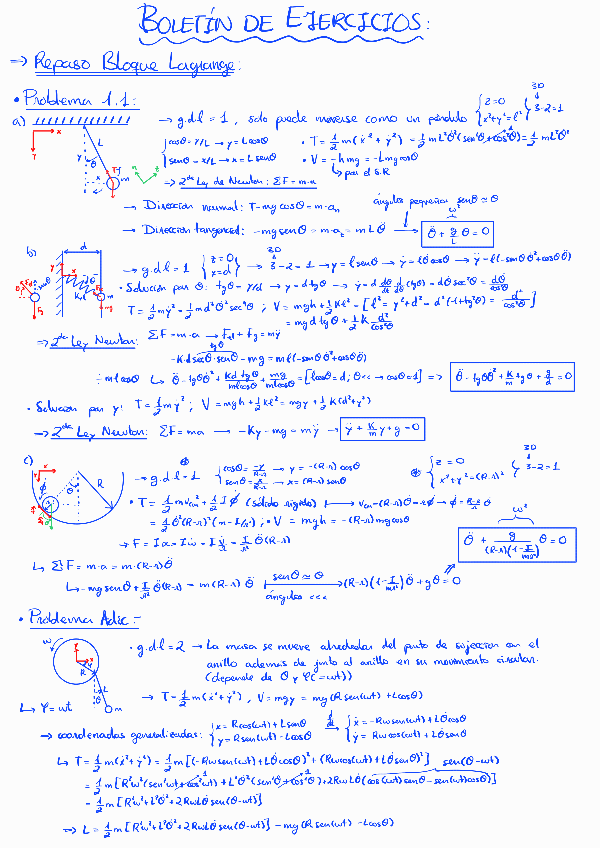 BOLETÍN DE EJERCICIOS:
→ Repaso Bloque Lagrange:
• Problema 1.1:
a) → g.d.l = 1, solo puede moverse como un péndulo { z=0 x²+y²=l² } 3D 3-2=1
{ cosθ = Y/L → y = L cosθ
senθ = X/L → x = L senθ
• T = 1/2 m(ẋ²+ẏ²) = 1/2 mL²θ̇²(sen²θ+cos²θ) = 1/2 mL²θ̇²
• V = -hmg = -Lmg cosθ
↳ por el S.R
→ 2da Ley de Newton: ΣF = m·a
→ Dirección normal: T - mg cosθ = m·aₙ
ángulos pequeños senθ ≈ θ
→ Dirección tangencial: -mg senθ = m·aₜ = mLθ̈ → θ̈ + g/L θ = 0
b) → g.d.l = 1 { z=0 x=d } 3D → 3-2=1 → y = l senθ → ẏ = lθ̇ cosθ → ÿ = l(-senθ θ̇² + cosθ θ̈)
• Solución por θ: tgθ = y/d → y = d tgθ → ẏ = d dθ/dt d/dθ (tgθ) = dθ̇ sec²θ = dθ̇/cos²θ
T = 1/2 mẏ² = 1/2 md²θ̇² sec⁴θ ; V = mgh + 1/2 Kl² = [l² = y²+d² = d²(1+tg²θ) = d²/cos²θ]
= mgd tgθ + 1/2 K d²/cos²θ
⇒ 2da Ley Newton: ΣF = m·a → Fel + Fg = mÿ
-K·d secθ·senθ - mg = ml(-senθ θ̇² + cosθ θ̈)
÷ ml cosθ ↳ θ̈ - tgθ θ̇² + Kd tgθ/ml cosθ + mg/ml cosθ = [l cosθ = d; θ<< → cosθ = 1] => θ̈ - tgθ θ̇² + K/m tgθ + g/d = 0
• Solución por y: T = 1/2 mẏ² ; V = mgh + 1/2 Kl² = mgy + 1/2 K(d²+y²)
→ 2da Ley Newton: ΣF = ma → -Ky - mg = mÿ → ÿ + K/m y + g = 0
c) → g.d.l = 1 { cosθ = -y/R-r → y = -(R-r) cosθ
senθ = x/R-r → x = (R-r) senθ
{ z = 0 x²+y² = (R-r)² } 3D 3-2=1
• T = 1/2 m v²cm + 1/2 I φ̇² (Sólido rígido) ↦ vcm = (R-r)θ̇ = rφ̇ → φ̇ = R-r/r θ̇
= 1/2 θ̇²(R-r)²(m - I/r²) ; • V = mgh = -(R-r) mg cosθ
→ F = Iα = Iω̇ = I v̇/r = I/r² θ̈(R-r)
↳ ΣF = m·a = m·(R-r)θ̈
ω²
↳ -mg senθ + I/r² θ̈(R-r) = m(R-r)θ̈ senθ ≈ θ ángulos <<< → (R-r)(1 - I/mr²)θ̈ + gθ = 0
θ̈ + g/(R-r)(1 - I/mr²) θ = 0
• Problema Adic:-
• g.d.l = 2 → La masa se mueve alrededor del punto de sujeción con el
anillo además de junto al anillo en su movimiento circular.
(depende de θ y φ(=ωt))
↳ φ = ωt
→ T = 1/2 m(ẋ²+ẏ²), V = mgy = mg(R sen(ωt) - L cosθ)
→ coordenadas generalizadas: { x = R cos(ωt) + L senθ
y = R sen(ωt) - L cosθ
d/dt → { ẋ = -Rω sen(ωt) + Lθ̇ cosθ
ẏ = Rω cos(ωt) + Lθ̇ senθ
↳ T = 1/2 m(ẋ²+ẏ²) = 1/2 m[(-Rω sen(ωt) + Lθ̇ cosθ)² + (Rω cos(ωt) + Lθ̇ senθ)²] sen(θ-ωt)
= 1/2 m[R²ω²(sen²ωt + cos²ωt) + L²θ̇²(sen²θ + cos²θ) + 2RωLθ̇(cos(ωt) senθ - sen(ωt) cosθ)]
= 1/2 m[R²ω² + L²θ̇² + 2RωLθ̇ sen(θ-ωt)]
⇒ L = 1/2 m[R²ω² + L²θ̇² + 2RωLθ̇ sen(θ-ωt)] - mg(R sen(ωt) - L cosθ)